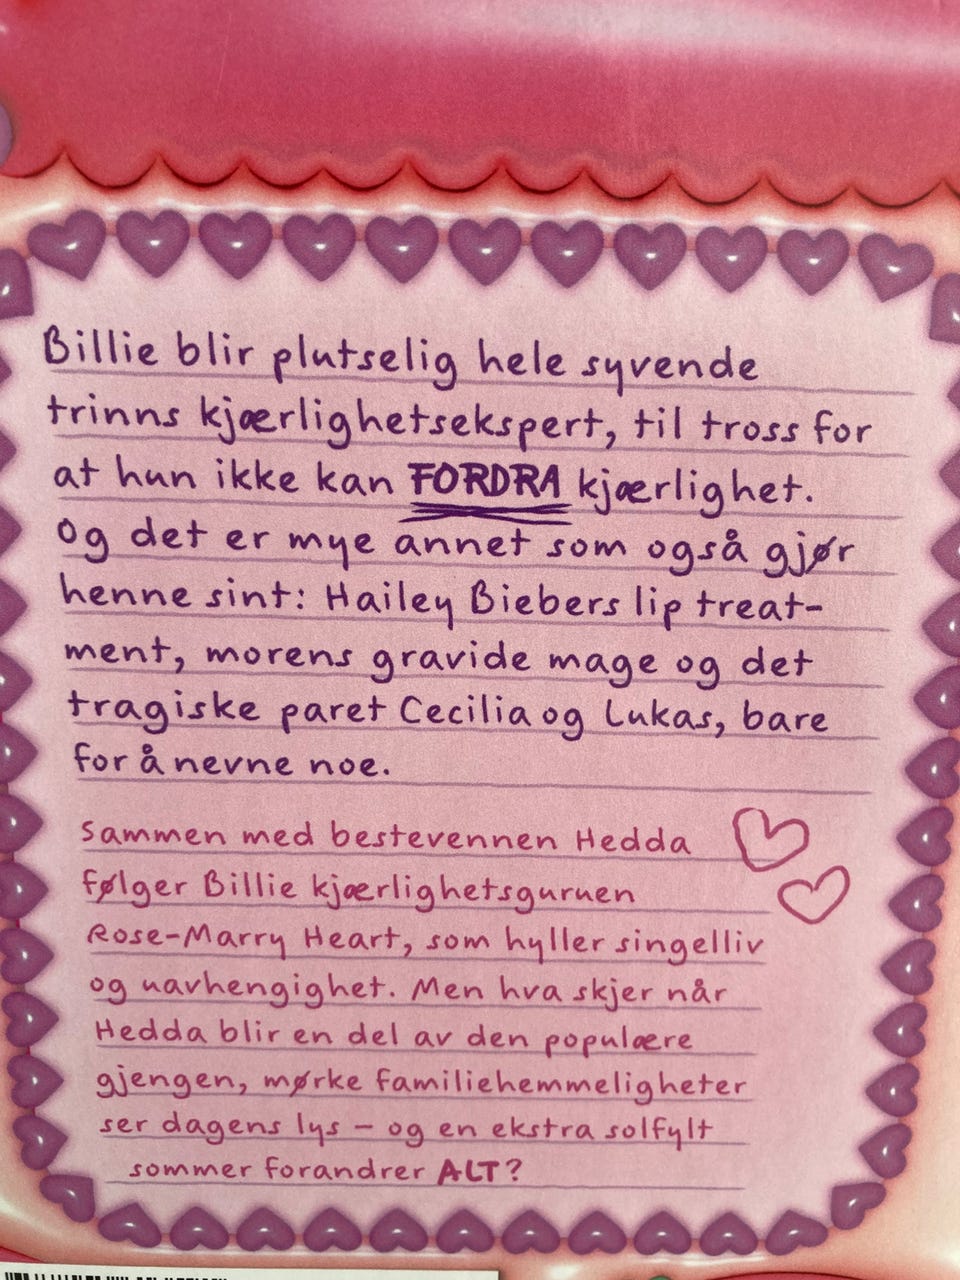 Billie blir plutselig hele syvende
trinns kjærlighetsekspert, til tross for
at hun ikke kan FORDRA kjærlighet.
Og det er mye annet som også gjør
henne sint: Hailey Biebers lip treat-
ment, morens gravide mage og det
tragiske paret Cecilia og Lukas, bare
for å nevne noe.
Sammen med bestevennen Hedda
følger Billie kjærlighetsguruen
Rose-Marry Heart, som hyller singelliv
og uavhengighet. Men hva skjer når
Hedda blir en del av den populære
gjengen, mørke familiehemmeligheter
ser dagens lys – og en ekstra solfylt
sommer forandrer ALT?